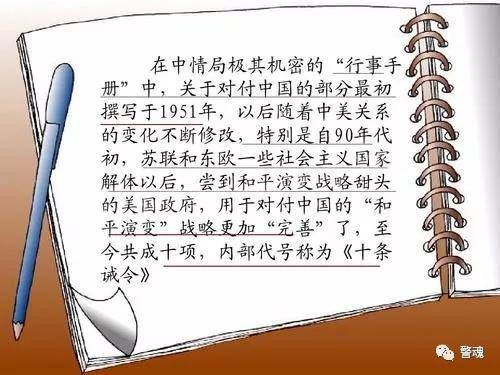 在中情局极其机密的“行事手
册”中，关于对付中国的部分最初
撰写于1951年，以后随着中美关系
的变化不断修改，特别是自90年代
初，苏联和东欧一些社会主义国家
解体以后，尝到和平演变战略甜头
的美国政府，用于对付中国的“和
平演变”战略更加“完善”了，至
今共成十项，内部代号称为《十条
诫令》
警魂